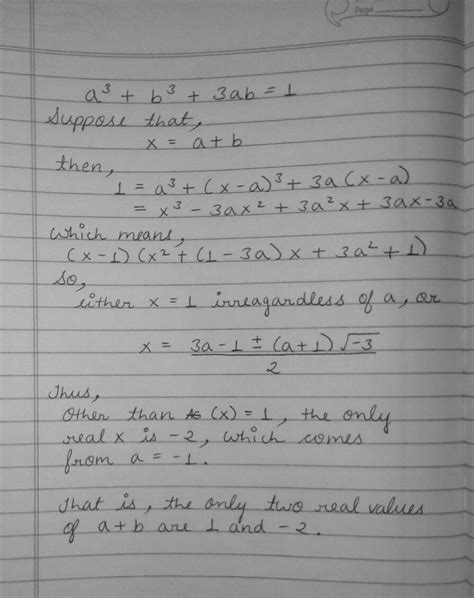 Page
a³ + b³ + 3ab = 1
Suppose that,
x = a+b
then,
1 = a³ + (x-a)³ + 3a(x-a)
= x³ - 3ax² + 3a²x + 3ax-3a
which means,
(x-1)(x² + (1-3a)x + 3a² + 1)
So,
either x = 1 irreagardless of a, or
x = 3a-1 ± (a+1)√-3 / 2
Thus,
Other than (x) = 1, the only
real x is -2, which comes
from a = -1.
That is, the only two real values
of a+b are 1 and -2.